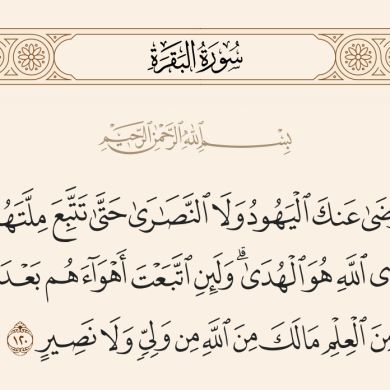 سُورَةُ البَقَرَةِ
بِسْمِ ٱللَّهِ ٱلرَّحْمَٰنِ ٱلرَّحِيمِ
ضَىٰ عَنكَ ٱلْيَهُودُ وَلَا ٱلنَّصَٰرَىٰ حَتَّىٰ تَتَّبِعَ مِلَّتَهُ
ى ٱللَّهِ هُوَ ٱلْهُدَىٰ ۗ وَلَئِنِ ٱتَّبَعْتَ أَهْوَآءَهُم بَعْدَ
مِنَ ٱلْعِلْمِ مَا لَكَ مِنَ ٱللَّهِ مِن وَلِىٍّ وَلَا نَصِيرٍ ١٢٠